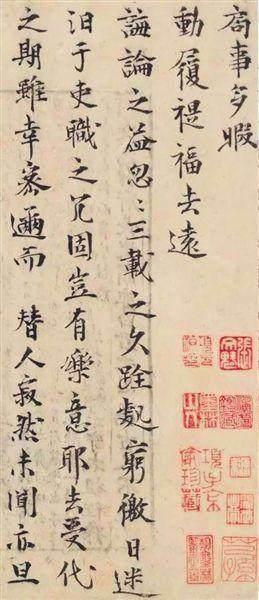 局事多暇
動履禔福去遠
誨論之益忽〻三載之久跧處窮徼日迷
汩于吏職之冗固豈有樂意耶去受代
之期雖幸密邇而 替人寂然未聞亦旦
項子京家珍藏